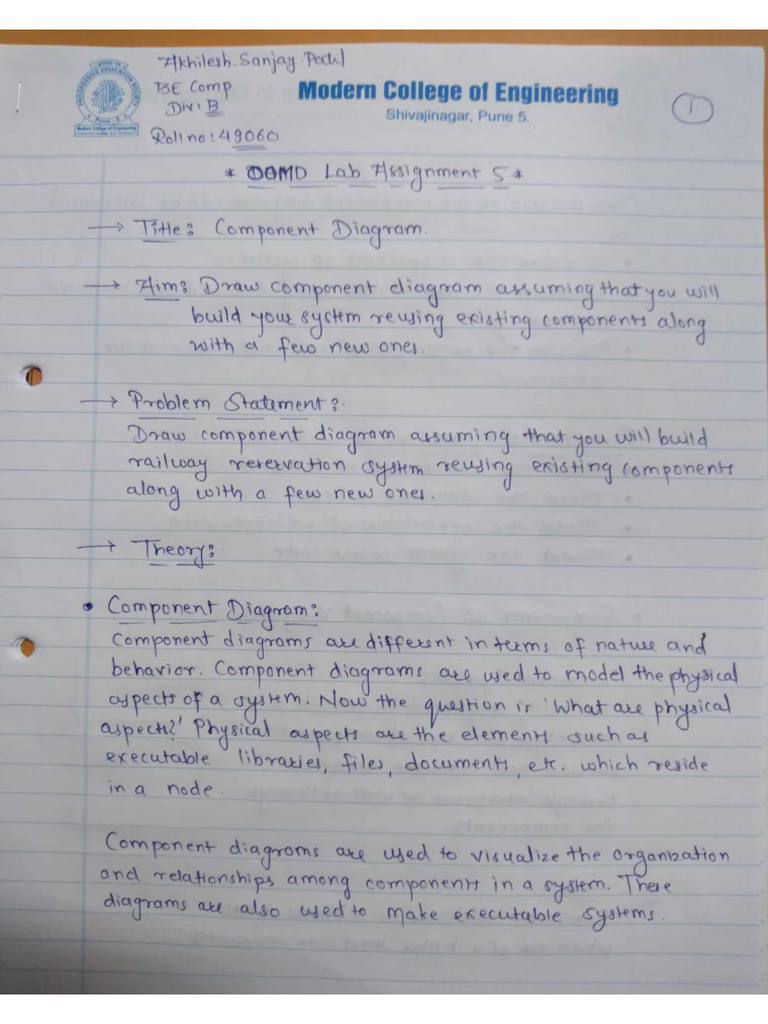 Akhilesh. Sanjay. Patil
BE Comp
Div: B
Roll no: 49060
Modern College of Engineering
Shivajinagar, Pune 5.
1.
* OOMD Lab Assignment 5 *
→ Title: Component Diagram.
→ Aim: Draw component diagram assuming that you will
build your system reusing existing components along
with a few new ones.
→ Problem Statement:
Draw component diagram assuming that you will build
railway reservation system reusing existing components
along with a few new ones.
→ Theory:
• Component Diagram:
Component diagrams are different in terms of nature and
behavior. Component diagrams are used to model the physical
aspects of a system. Now the question is 'What are physical
aspects?' Physical aspects are the elements such as
executable libraries, files, documents, etc. which reside
in a node.
Component diagrams are used to visualize the organization
and relationships among components in a system. These
diagrams are also used to make executable systems.